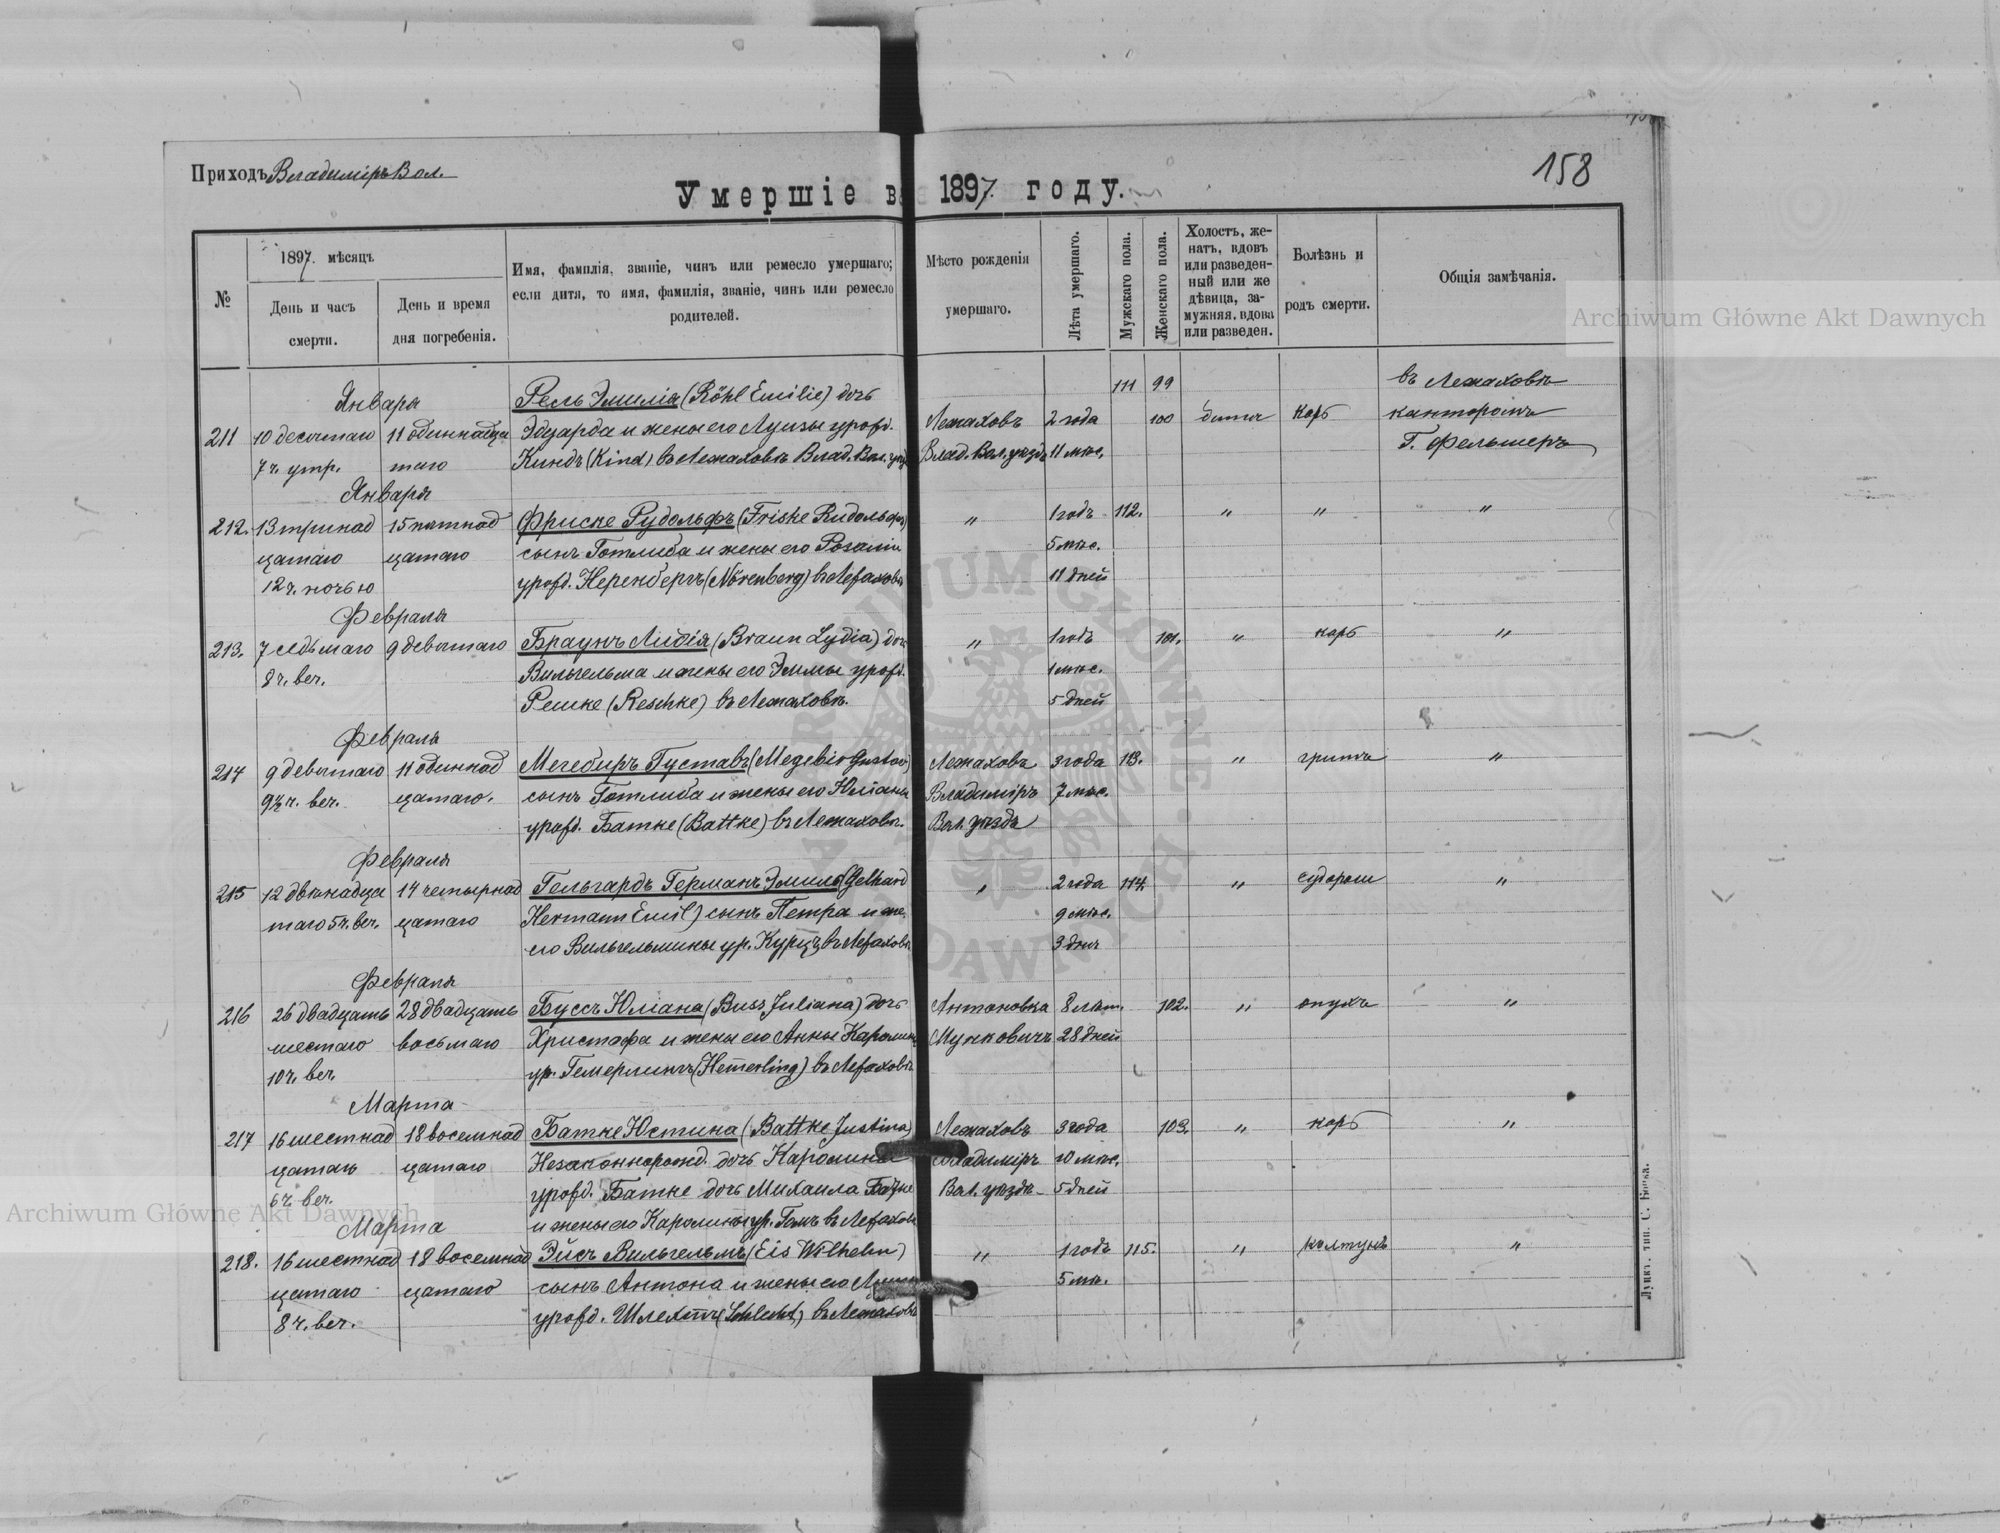 158
Приходъ Владиміръ Вол.
Умершіе въ 1897 году.
№
1897 мѣсяцъ
День и часъ смерти.
День и время дня погребенія.
Имя, фамилія, званіе, чинъ или ремесло умершаго;
если дитя, то имя, фамилія, званіе, чинъ или ремесло
родителей.
Мѣсто рожденія
умершаго.
Лѣта умершаго.
Мужскаго пола.
Женскаго пола.
Холостъ, же-
натъ, вдовъ
или разведен-
ный или же
дѣвица, за-
мужняя, вдова
или разведен.
Болѣзнь и
родъ смерти.
Общія замѣчанія.
Archiwum Główne Akt Dawnych
Января Рель Эмилія (Röhl Emilie) дочь 111 99 въ Лежаховѣ
211 10 десятаго 11 одиннадца Эдуарда и жены его Луизы урожд. Лежаховъ 2 года 100 дитя корь канторомъ
7 ч. утр. таго Киндъ (Kind) въ Лежаховѣ Влад. Вол. Влад. Вол. уѣзда 11 мѣс. Г. Фельшеръ
Января
212. 13 тринад 15 пятнад Фриске Рудольфъ (Friske " 1 годъ 112. " " "
цатаго цатаго сынъ Готлиба и жены его Розаліи 5 мѣс.
12 ч. ночью урожд. Неренбергъ (Nörenberg) въ Лежаховѣ 11 дней
Февраля
213. 7 седьмаго 9 девятаго Браунъ Лидія (Braun Lydia) дочь " 1 годъ 101. " корь "
8 ч. веч. Вильгельма и жены его Эммы урожд. 1 мѣс.
Решке (Reschke) въ Лежаховѣ. 5 дней
Февраля
214 9 девятаго 11 одиннад Мегебиръ Густавъ (Megebir Gustav) Лежаховъ 3 года 113. " грипъ "
9½ ч. веч. цатаго. сынъ Готлиба и жены его Юліаны Владиміръ 7 мѣс.
урожд. Батке (Battke) въ Лежаховѣ. Вол. уѣзда
Февраля
215 12 двѣнадца 14 четырнад Гельгардъ Германъ Эмиль (Gelhard " 2 года 114. " судороги "
таго 5 ч. веч. цатаго Hermann Emil) сынъ Петра и же. 9 мѣс.
его Вильгельмины ур. Курцъ въ Лежаховѣ 3 дня
Февраля
216 26 двадцать 28 двадцать Буссъ Юліана (Buss Juliana) дочь Антоновка 8 лѣт. 102. " опухъ "
шестаго восьмаго Христофа и жены его Анны Каролины Мунковичъ 28 дней
10 ч. веч. ур. Гемерлингъ (Hem̄erling) въ Лежаховѣ
Марта
217 16 шестнад 18 восемнад Батке Юстина (Battke Justina) Лежаховъ 3 года 103. " корь "
цатаго цатаго Незаконнорожд. дочь Каролины Владиміръ 10 мѣс.
6 ч. веч. урожд. Батке дочь Михаила Батке Вол. уѣзда 5 дней
Марта и жены его Каролины ур. въ Лежаховѣ
218. 16 шестнад 18 восемнад Эйсъ Вильгельмъ (Eis Wilhelm) " 1 годъ 115. " колтунъ "
цатаго цатаго сынъ Антона и жены его 5 мѣ.
8 ч. веч. урожд. Шлехтъ (Schlecht) въ Лежаховѣ
Луцкъ. тип. С. Бокса.
Archiwum Główne Akt Dawnych